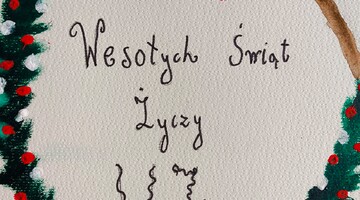 Wesołych Świąt
Życzy